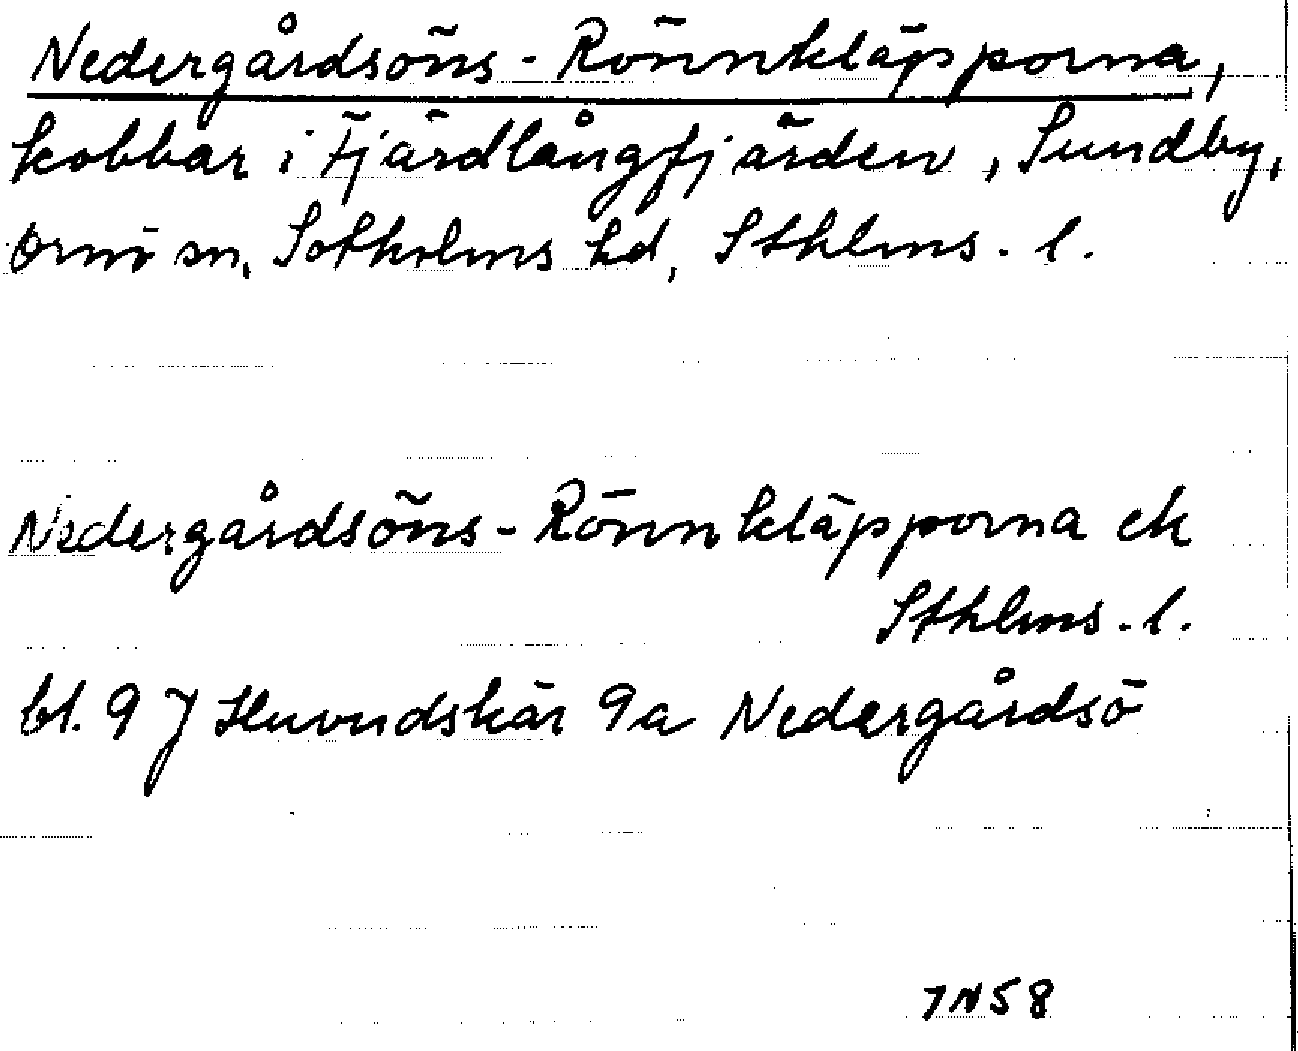 Nedergårdsöns-Rönnkläpporna,
kobbar i Fjärdlångfjärden, Sundby,
Ornö sn, Sotholms hd, Sthlms. l.
Nedergårdsöns-Rönnkläpporna ek
Sthlms. l.
bl. 9 J Huvudskär 9a Nedergårdsö
7N58